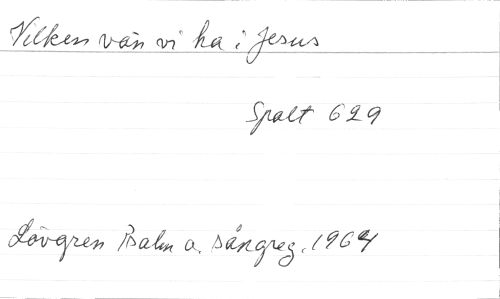 Vilken vän vi ha i Jesus
Spalt 629
Lövgren Psalm o. sångreg. 1964